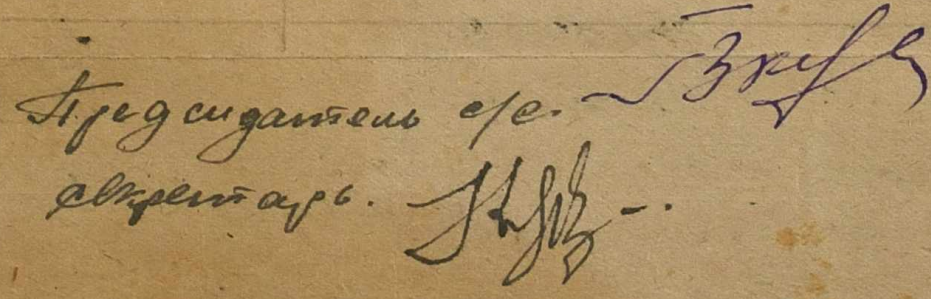 Председатель с/с.
секретарь.